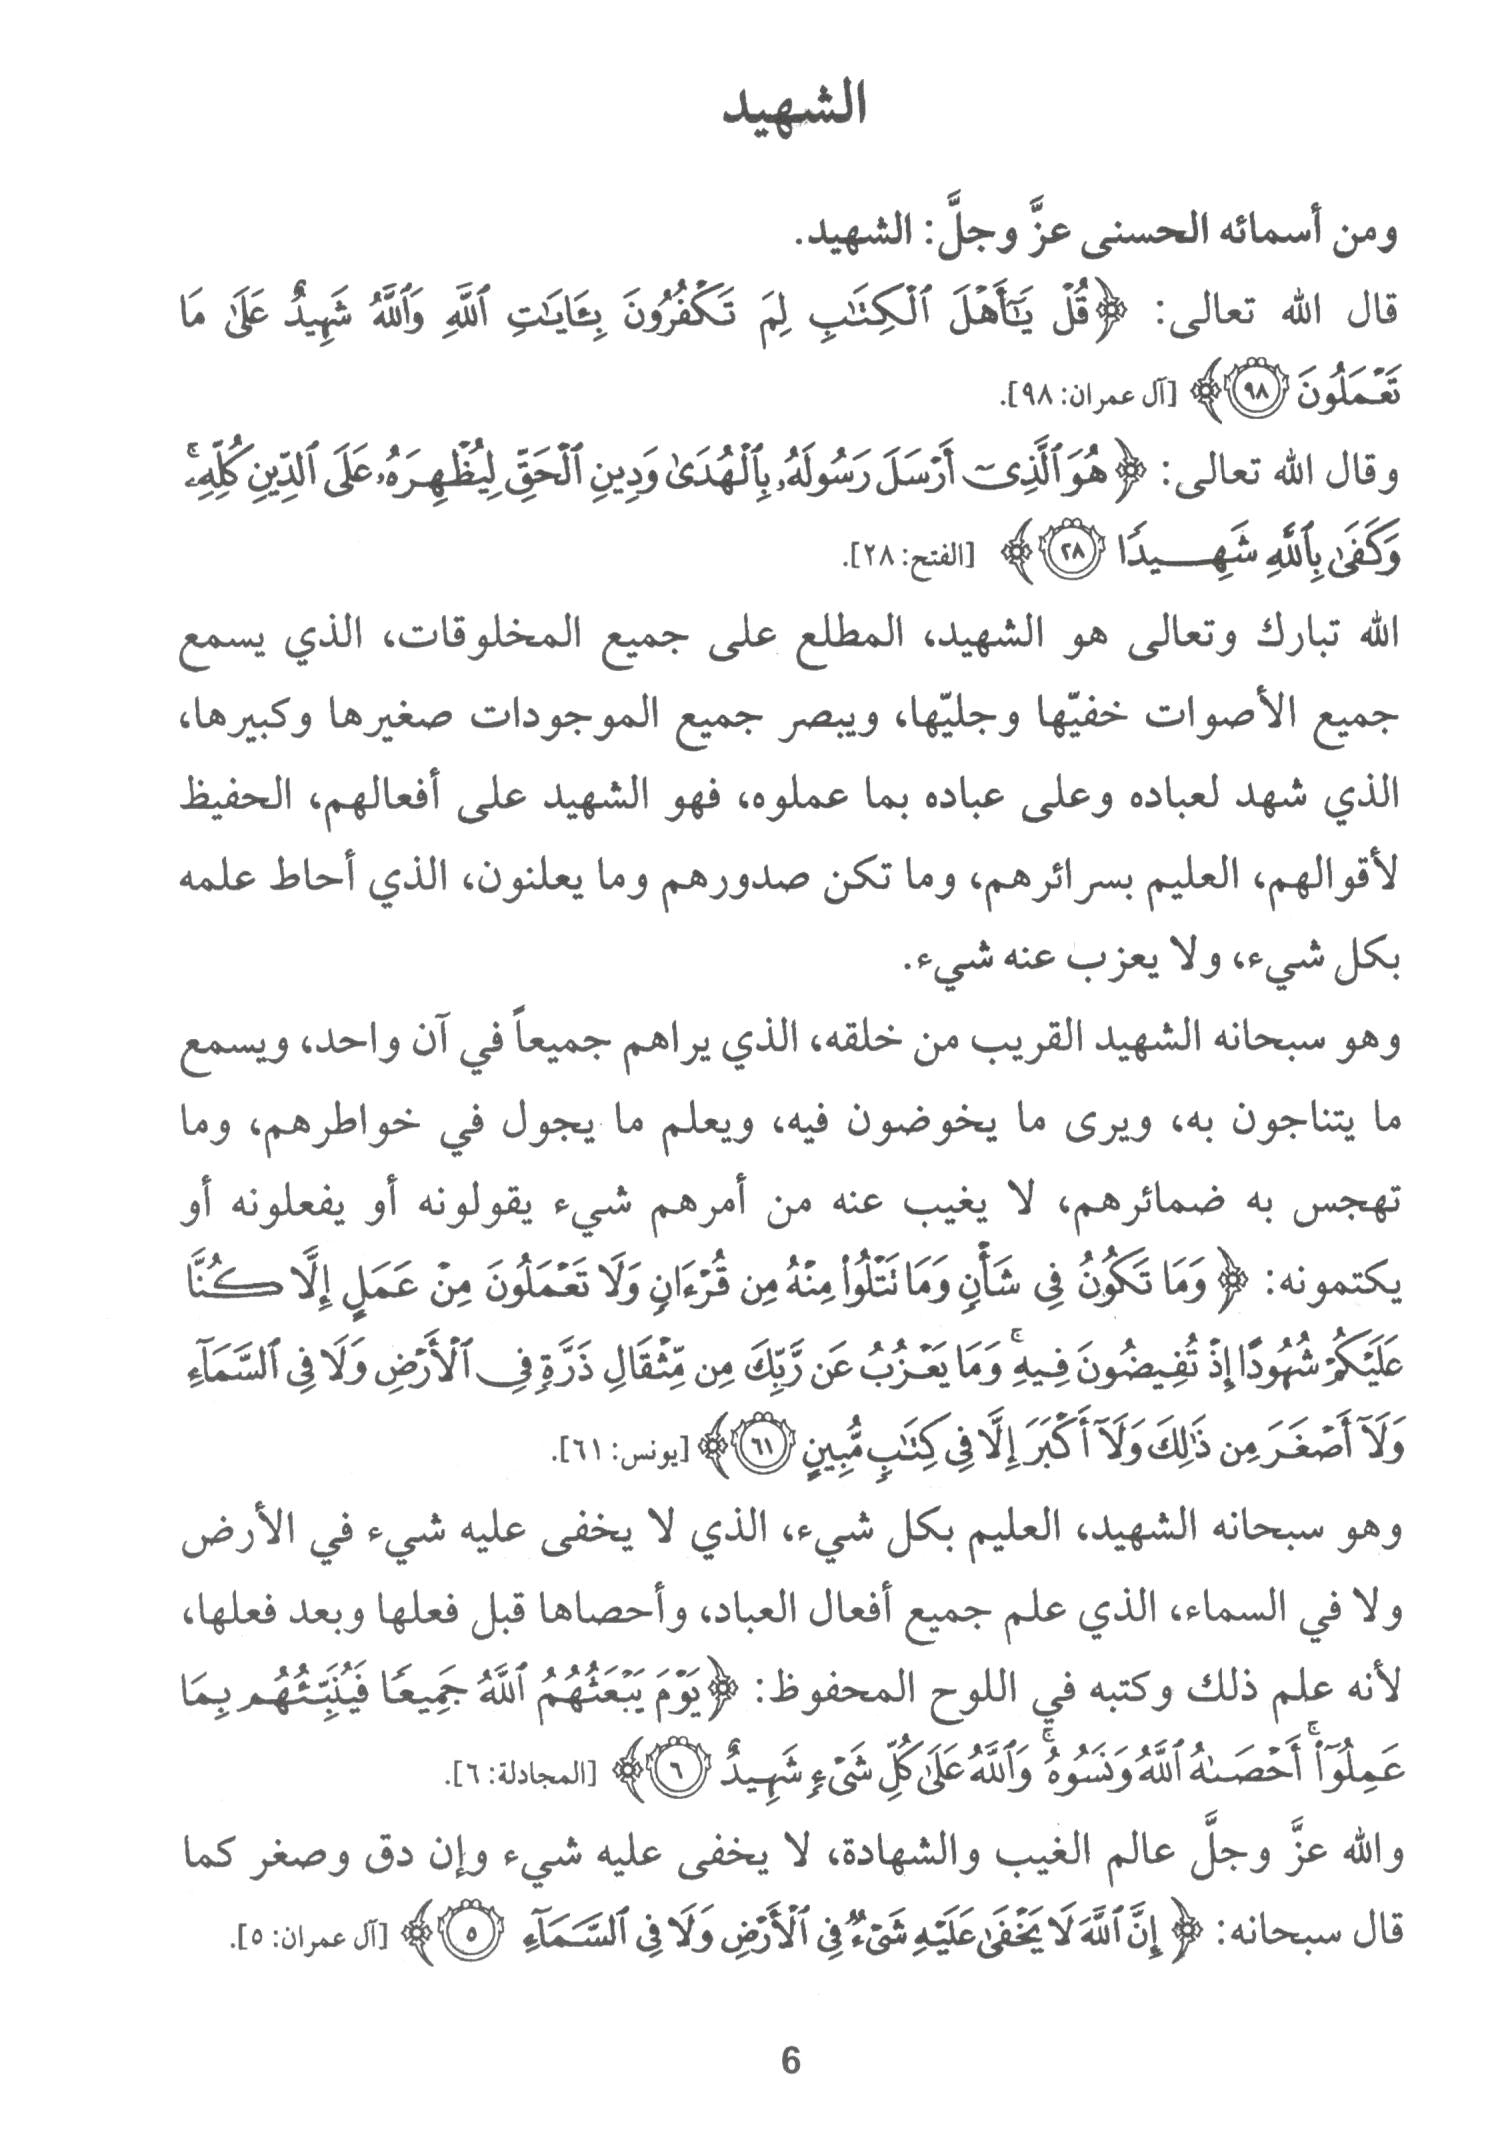 الشهيد
ومن أسمائه الحسنى عزَّ وجلَّ: الشهيد.
قال الله تعالى: ﴿قُلْ يَٰٓأَهْلَ ٱلْكِتَٰبِ لِمَ تَكْفُرُونَ بِـَٔايَٰتِ ٱللَّهِ وَٱللَّهُ شَهِيدٌ عَلَىٰ مَا
تَعْمَلُونَ ٩٨﴾ [آل عمران: ٩٨].
وقال الله تعالى: ﴿هُوَ ٱلَّذِىٓ أَرْسَلَ رَسُولَهُۥ بِٱلْهُدَىٰ وَدِينِ ٱلْحَقِّ لِيُظْهِرَهُۥ عَلَى ٱلدِّينِ كُلِّهِۦۚ
وَكَفَىٰ بِٱللَّهِ شَهِيدًا ٢٨﴾ [الفتح: ٢٨].
الله تبارك وتعالى هو الشهيد، المطلع على جميع المخلوقات، الذي يسمع
جميع الأصوات خفيّها وجليّها، ويبصر جميع الموجودات صغيرها وكبيرها،
الذي شهد لعباده وعلى عباده بما عملوه، فهو الشهيد على أفعالهم، الحفيظ
لأقوالهم، العليم بسرائرهم، وما تكن صدورهم وما يعلنون، الذي أحاط علمه
بكل شيء، ولا يعزب عنه شيء.
وهو سبحانه الشهيد القريب من خلقه، الذي يراهم جميعاً في آن واحد، ويسمع
ما يتناجون به، ويرى ما يخوضون فيه، ويعلم ما يجول في خواطرهم، وما
تهجس به ضمائرهم، لا يغيب عنه من أمرهم شيء يقولونه أو يفعلونه أو
يكتمونه: ﴿وَمَا تَكُونُ فِى شَأْنٍ وَمَا تَتْلُوا۟ مِنْهُ مِن قُرْءَانٍ وَلَا تَعْمَلُونَ مِنْ عَمَلٍ إِلَّا كُنَّا
عَلَيْكُمْ شُهُودًا إِذْ تُفِيضُونَ فِيهِۚ وَمَا يَعْزُبُ عَن رَّبِّكَ مِن مِّثْقَالِ ذَرَّةٍ فِى ٱلْأَرْضِ وَلَا فِى ٱلسَّمَآءِ
وَلَآ أَصْغَرَ مِن ذَٰلِكَ وَلَآ أَكْبَرَ إِلَّا فِى كِتَٰبٍ مُّبِينٍ ٦١﴾ [يونس: ٦١].
وهو سبحانه الشهيد، العليم بكل شيء، الذي لا يخفى عليه شيء في الأرض
ولا في السماء، الذي علم جميع أفعال العباد، وأحصاها قبل فعلها وبعد فعلها،
لأنه علم ذلك وكتبه في اللوح المحفوظ: ﴿يَوْمَ يَبْعَثُهُمُ ٱللَّهُ جَمِيعًا فَيُنَبِّئُهُم بِمَا
عَمِلُوٓا۟ۚ أَحْصَىٰهُ ٱللَّهُ وَنَسُوهُۚ وَٱللَّهُ عَلَىٰ كُلِّ شَىْءٍ شَهِيدٌ ٦﴾ [المجادلة: ٦].
والله عزَّ وجلَّ عالم الغيب والشهادة، لا يخفى عليه شيء وإن دق وصغر كما
قال سبحانه: ﴿إِنَّ ٱللَّهَ لَا يَخْفَىٰ عَلَيْهِ شَىْءٌ فِى ٱلْأَرْضِ وَلَا فِى ٱلسَّمَآءِ ٥﴾ [آل عمران: ٥].
6